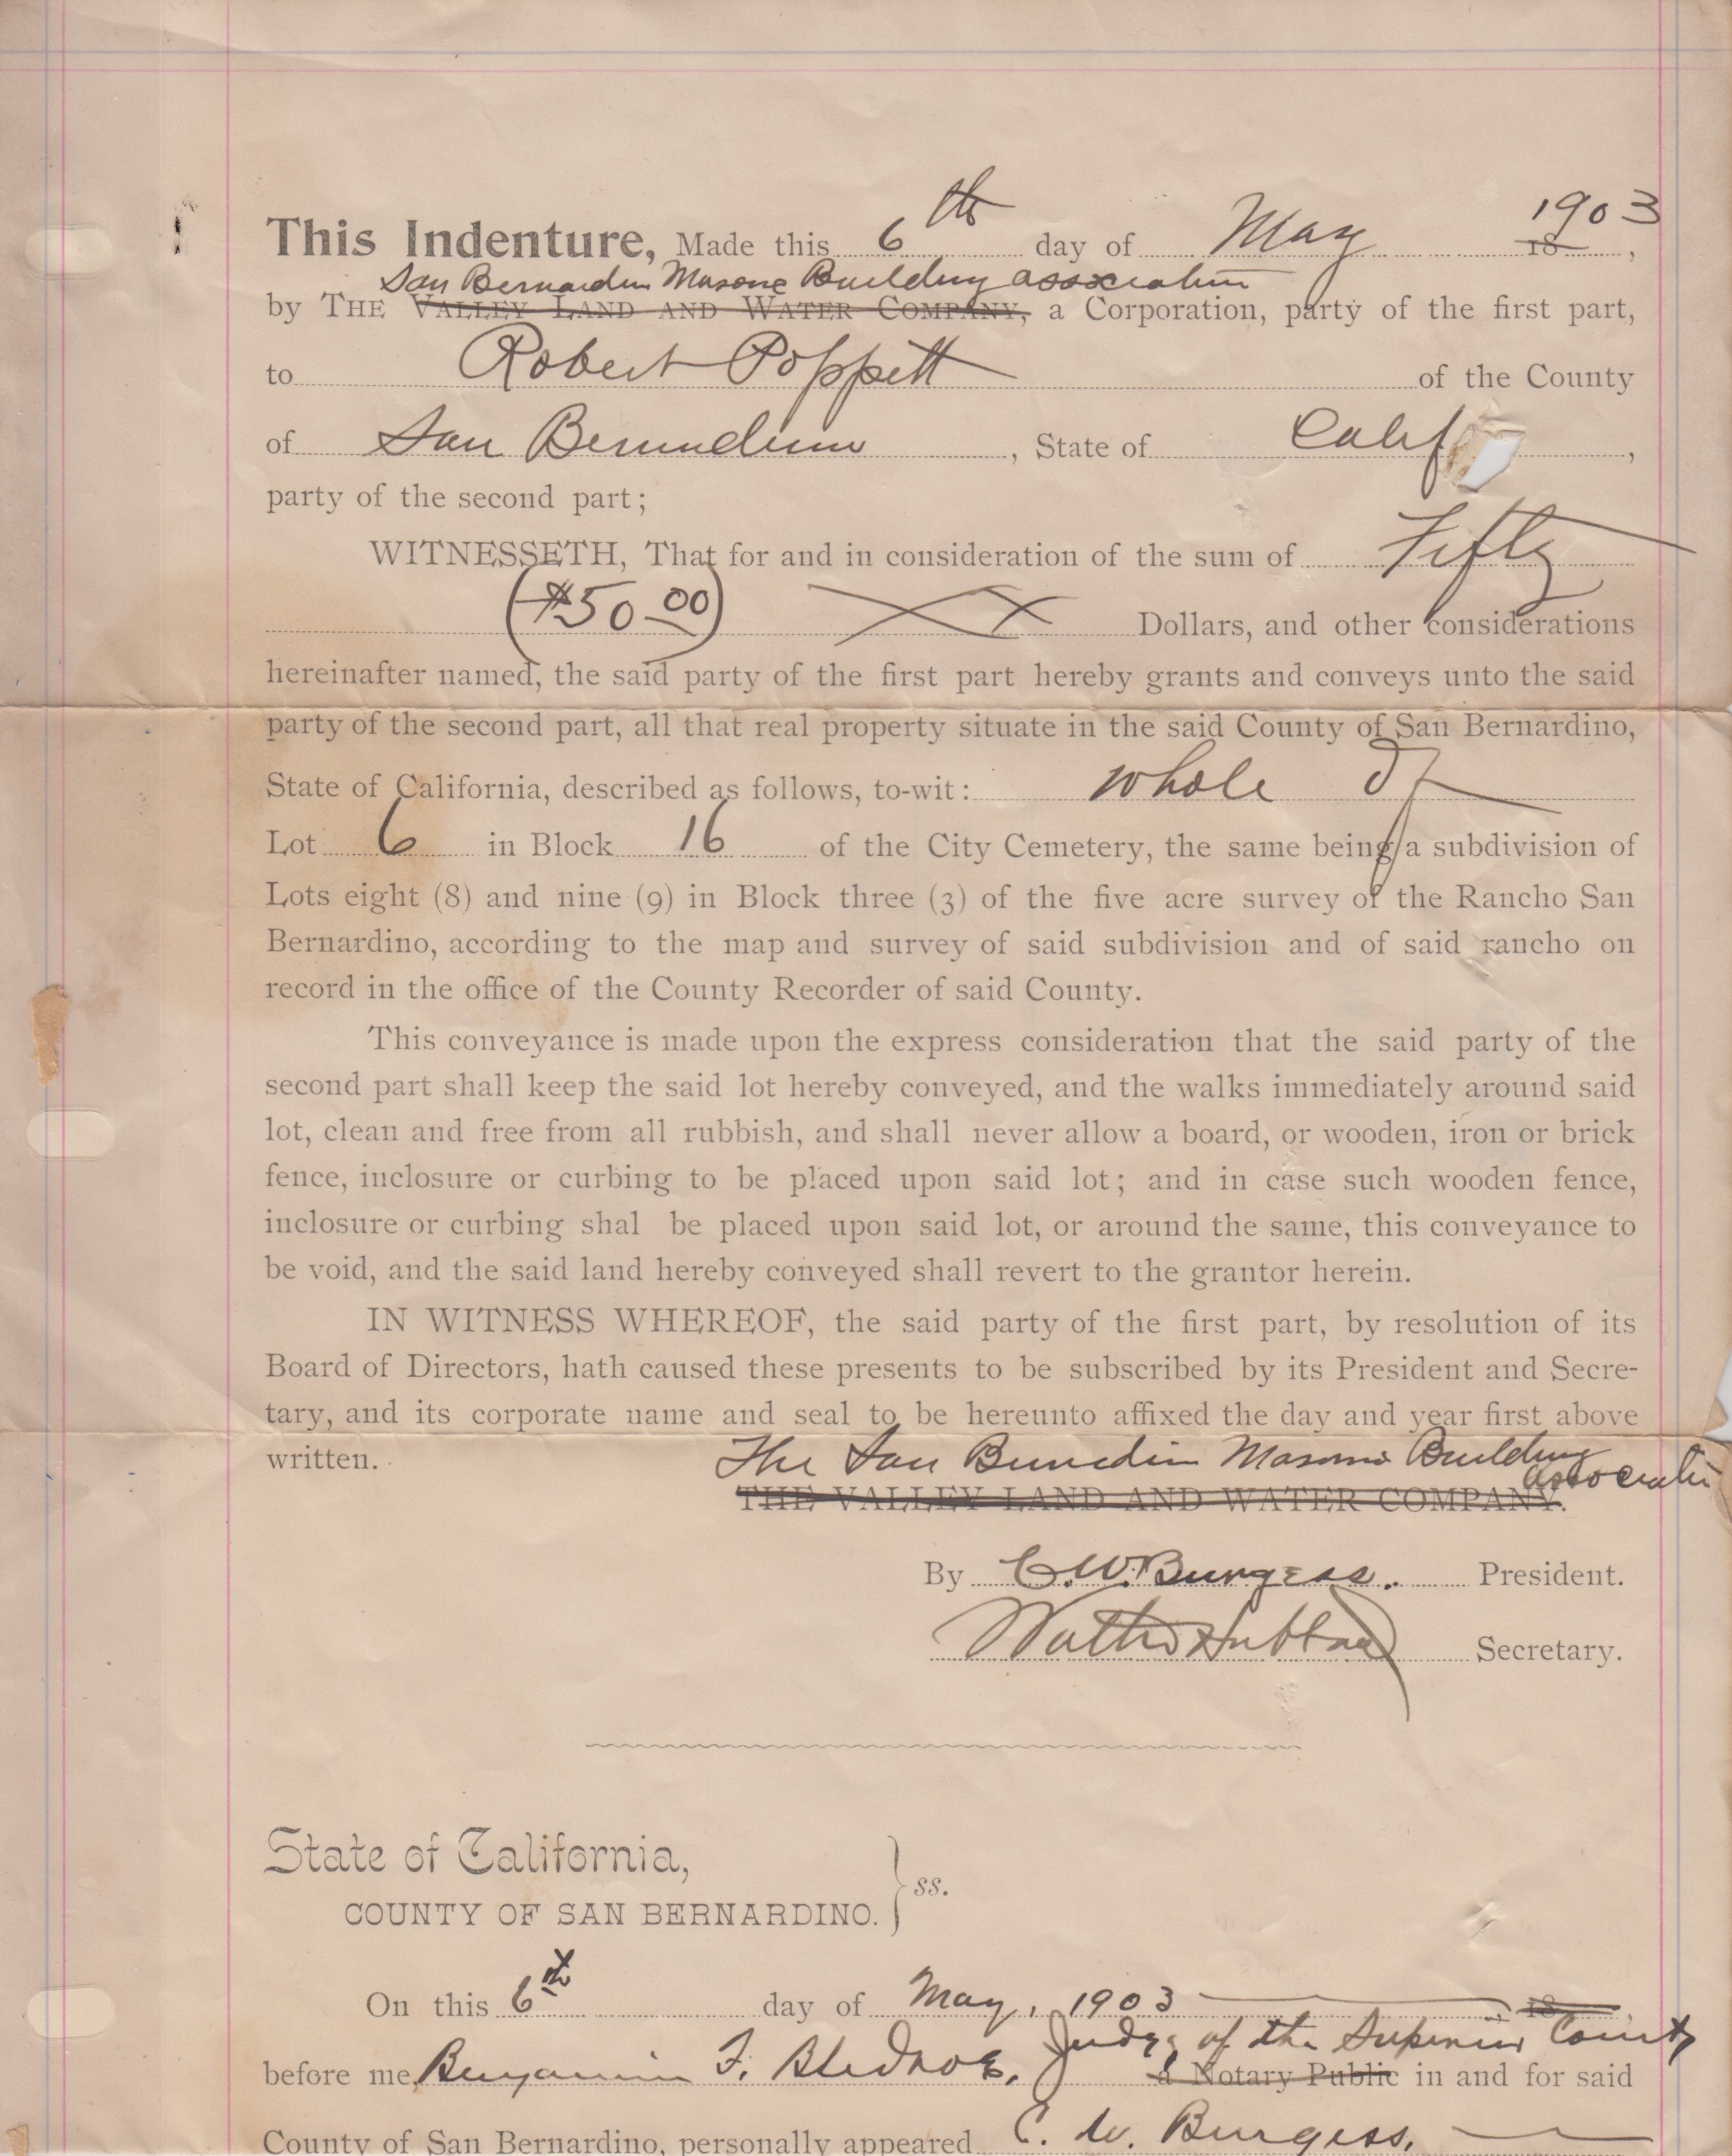 This Indenture, Made this 6th day of May 1903 18 ,
San Bernardino Masonic Building association
by THE VALLEY LAND AND WATER COMPANY, a Corporation, party of the first part,
to Robert Poppett of the County
of San Bernardino , State of Calif ,
party of the second part;
WITNESSETH, That for and in consideration of the sum of Fifty
($50.00) Dollars, and other considerations
hereinafter named, the said party of the first part hereby grants and conveys unto the said
party of the second part, all that real property situate in the said County of San Bernardino,
State of California, described as follows, to-wit: whole of
Lot 6 in Block 16 of the City Cemetery, the same being a subdivision of
Lots eight (8) and nine (9) in Block three (3) of the five acre survey of the Rancho San
Bernardino, according to the map and survey of said subdivision and of said rancho on
record in the office of the County Recorder of said County.
This conveyance is made upon the express consideration that the said party of the
second part shall keep the said lot hereby conveyed, and the walks immediately around said
lot, clean and free from all rubbish, and shall never allow a board, or wooden, iron or brick
fence, inclosure or curbing to be placed upon said lot; and in case such wooden fence,
inclosure or curbing shal be placed upon said lot, or around the same, this conveyance to
be void, and the said land hereby conveyed shall revert to the grantor herein.
IN WITNESS WHEREOF, the said party of the first part, by resolution of its
Board of Directors, hath caused these presents to be subscribed by its President and Secre-
tary, and its corporate name and seal to be hereunto affixed the day and year first above
written.
The San Bernardino Masonic Building
Association
THE VALLEY LAND AND WATER COMPANY.
By C. W. Burgess. President.
Walter Hubbard Secretary.
State of California,
COUNTY OF SAN BERNARDINO. } ss.
On this 6th day of May, 1903 18
Judge of the Superior Court
before me, Benjamin F. Bledsoe, a Notary Public in and for said
County of San Bernardino, personally appeared C. W. Burgess,